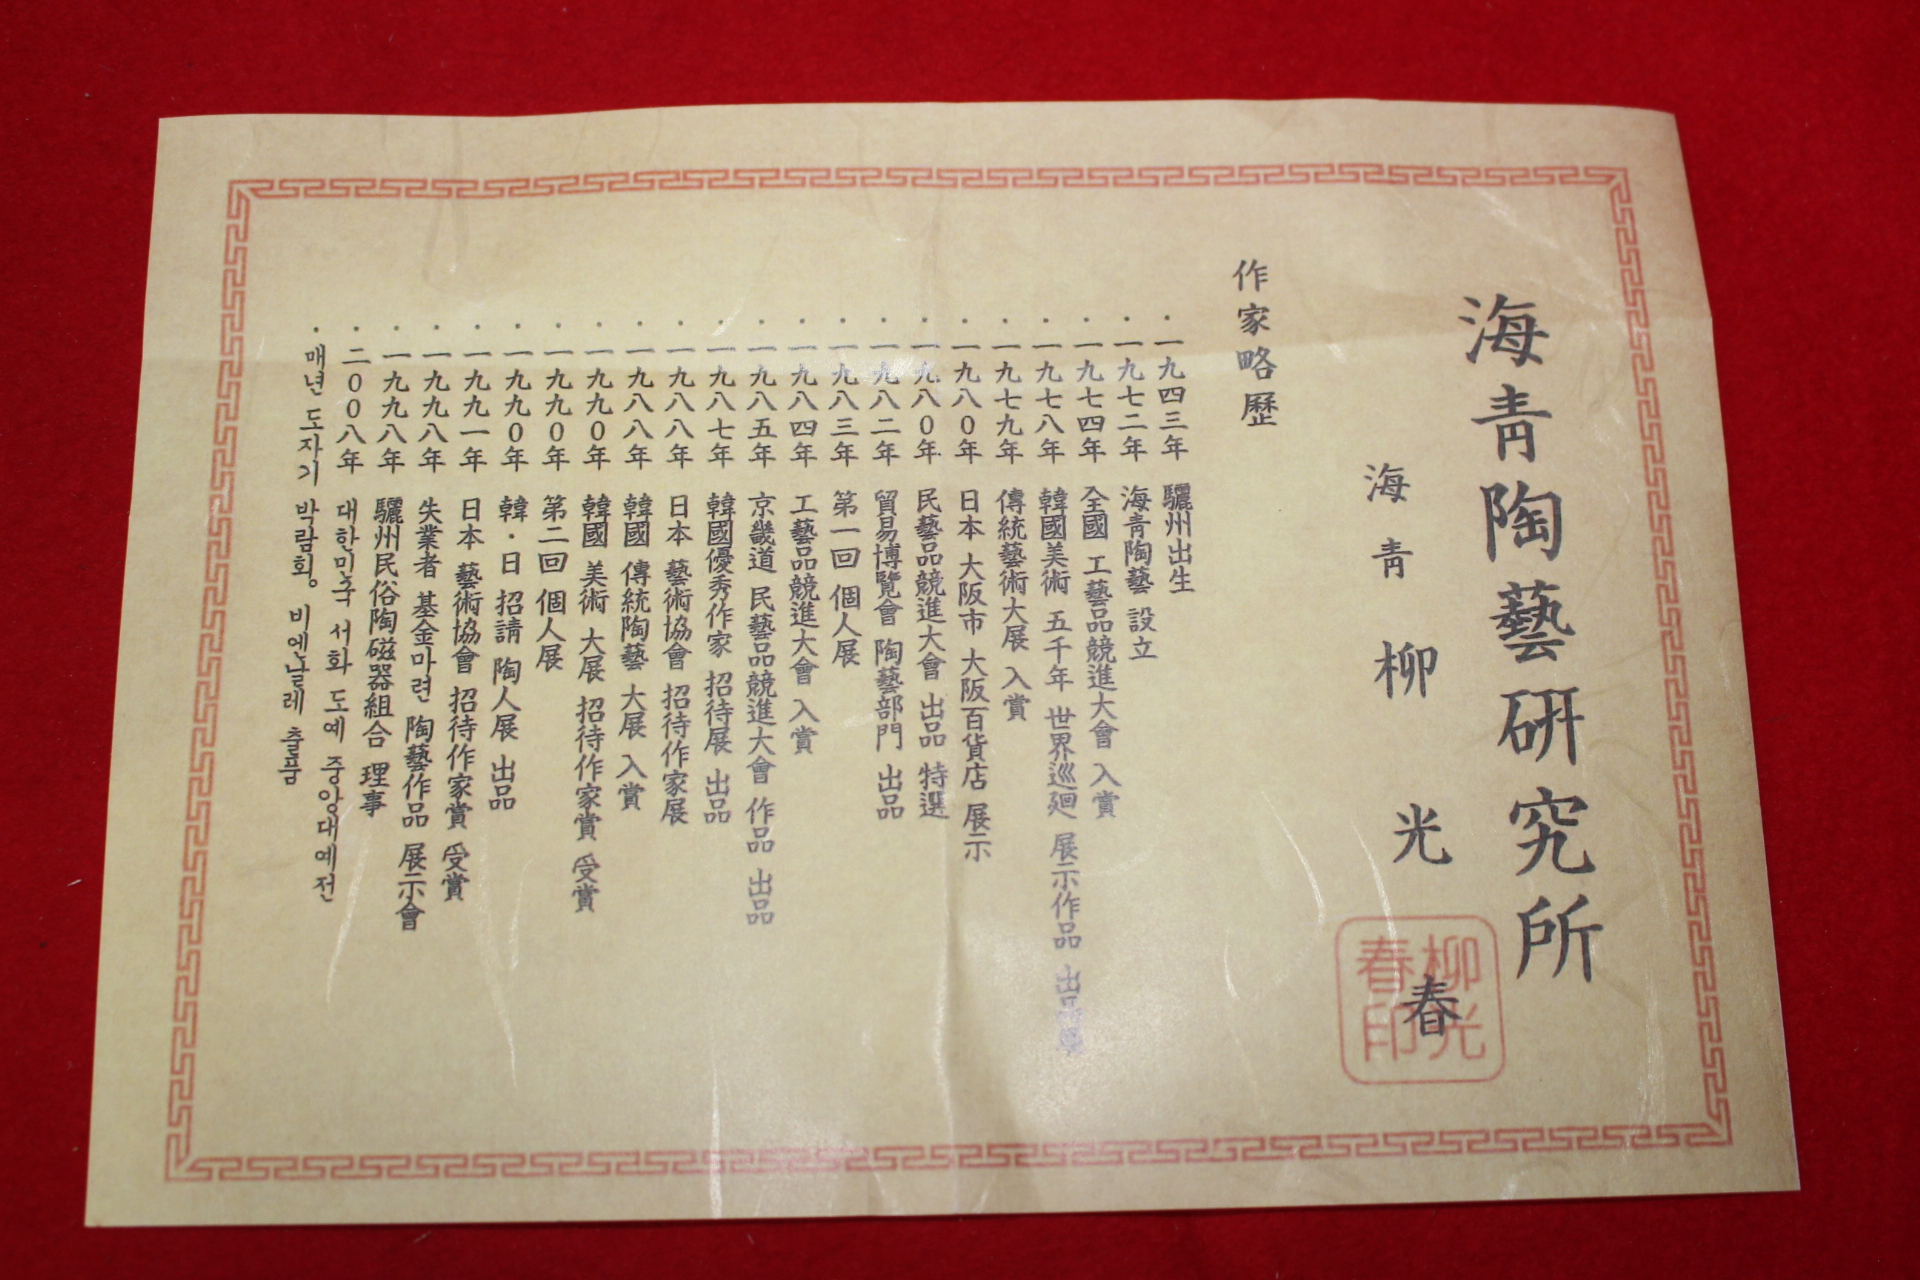 海靑陶藝硏究所
海靑 柳光春
柳光
春印
作家略歷
·一九四三年 驪州出生
·一九七二年 海靑陶藝 設立
·一九七四年 全國 工藝品競進大會 入賞
·一九七八年 韓國美術 五千年 世界巡廻 展示作品
·一九七九年 傳統藝術大展 入賞
·一九八0年 日本 大阪市 大阪百貨店 展示
·一九八0年 民藝品競進大會 出品 特選
·一九八二年 貿易博覽會 陶藝部門 出品
·一九八三年 第一回 個人展
·一九八四年 工藝品競進大會 入賞
·一九八五年 京畿道 民藝品競進大會 作品 出品
·一九八七年 韓國優秀作家 招待展 出品
·一九八八年 日本 藝術協會 招待作家展
·一九八八年 韓國 傳統陶藝 大展 入賞
·一九九0年 韓國 美術 大展 招待作家賞 受賞
·一九九0年 第二回 個人展
·一九九0年 韓·日 招請 陶人展 出品
·一九九一年 日本 藝術協會 招待作家賞 受賞
·一九九八年 失業者 基金마련 陶藝作品 展示會
·一九九八年 驪州民俗陶磁器組合 理事
·二00八年 대한민국 서화 도예 중앙대예전
·매년 도자기 박람회。 비엔날레 출품